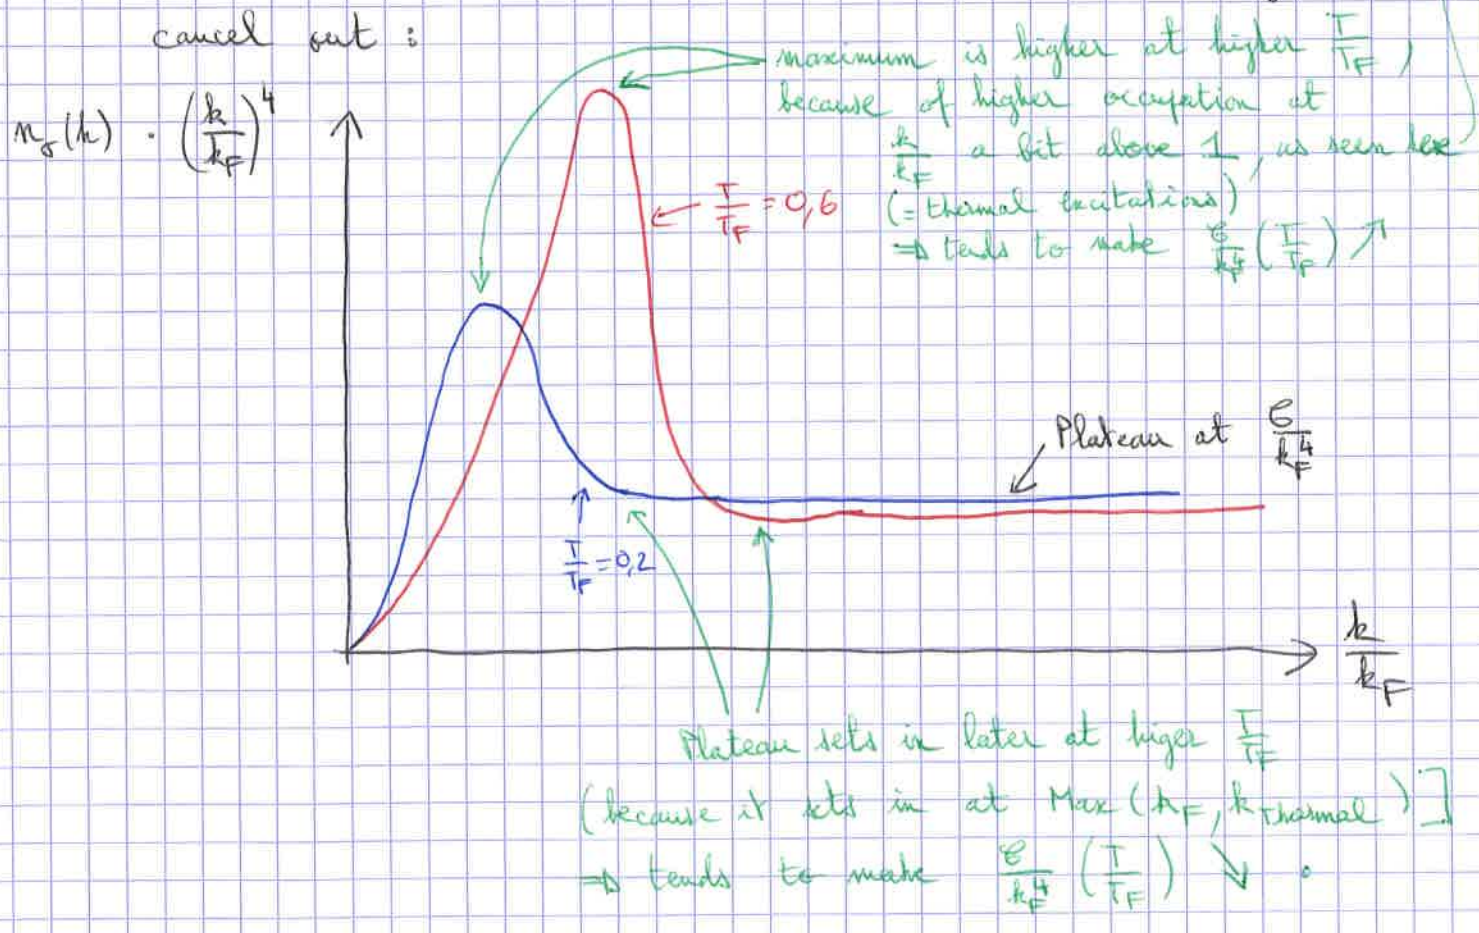 cancel out :
n_σ(k) · (k/k_F)^4
maximum is higher at higher T/T_F,
because of higher occupation at
k/k_F a bit above 1, as seen here
(= thermal excitations)
⇒ tends to make C/k_F^4 (T/T_F) ↗
← T/T_F = 0,6
Plateau at C/k_F^4
T/T_F = 0,2
k/k_F
Plateau sets in later at higer T/T_F
(because it sets in at Max(k_F, k_thermal)]
⇒ tends to make C/k_F^4 (T/T_F) ↘ .